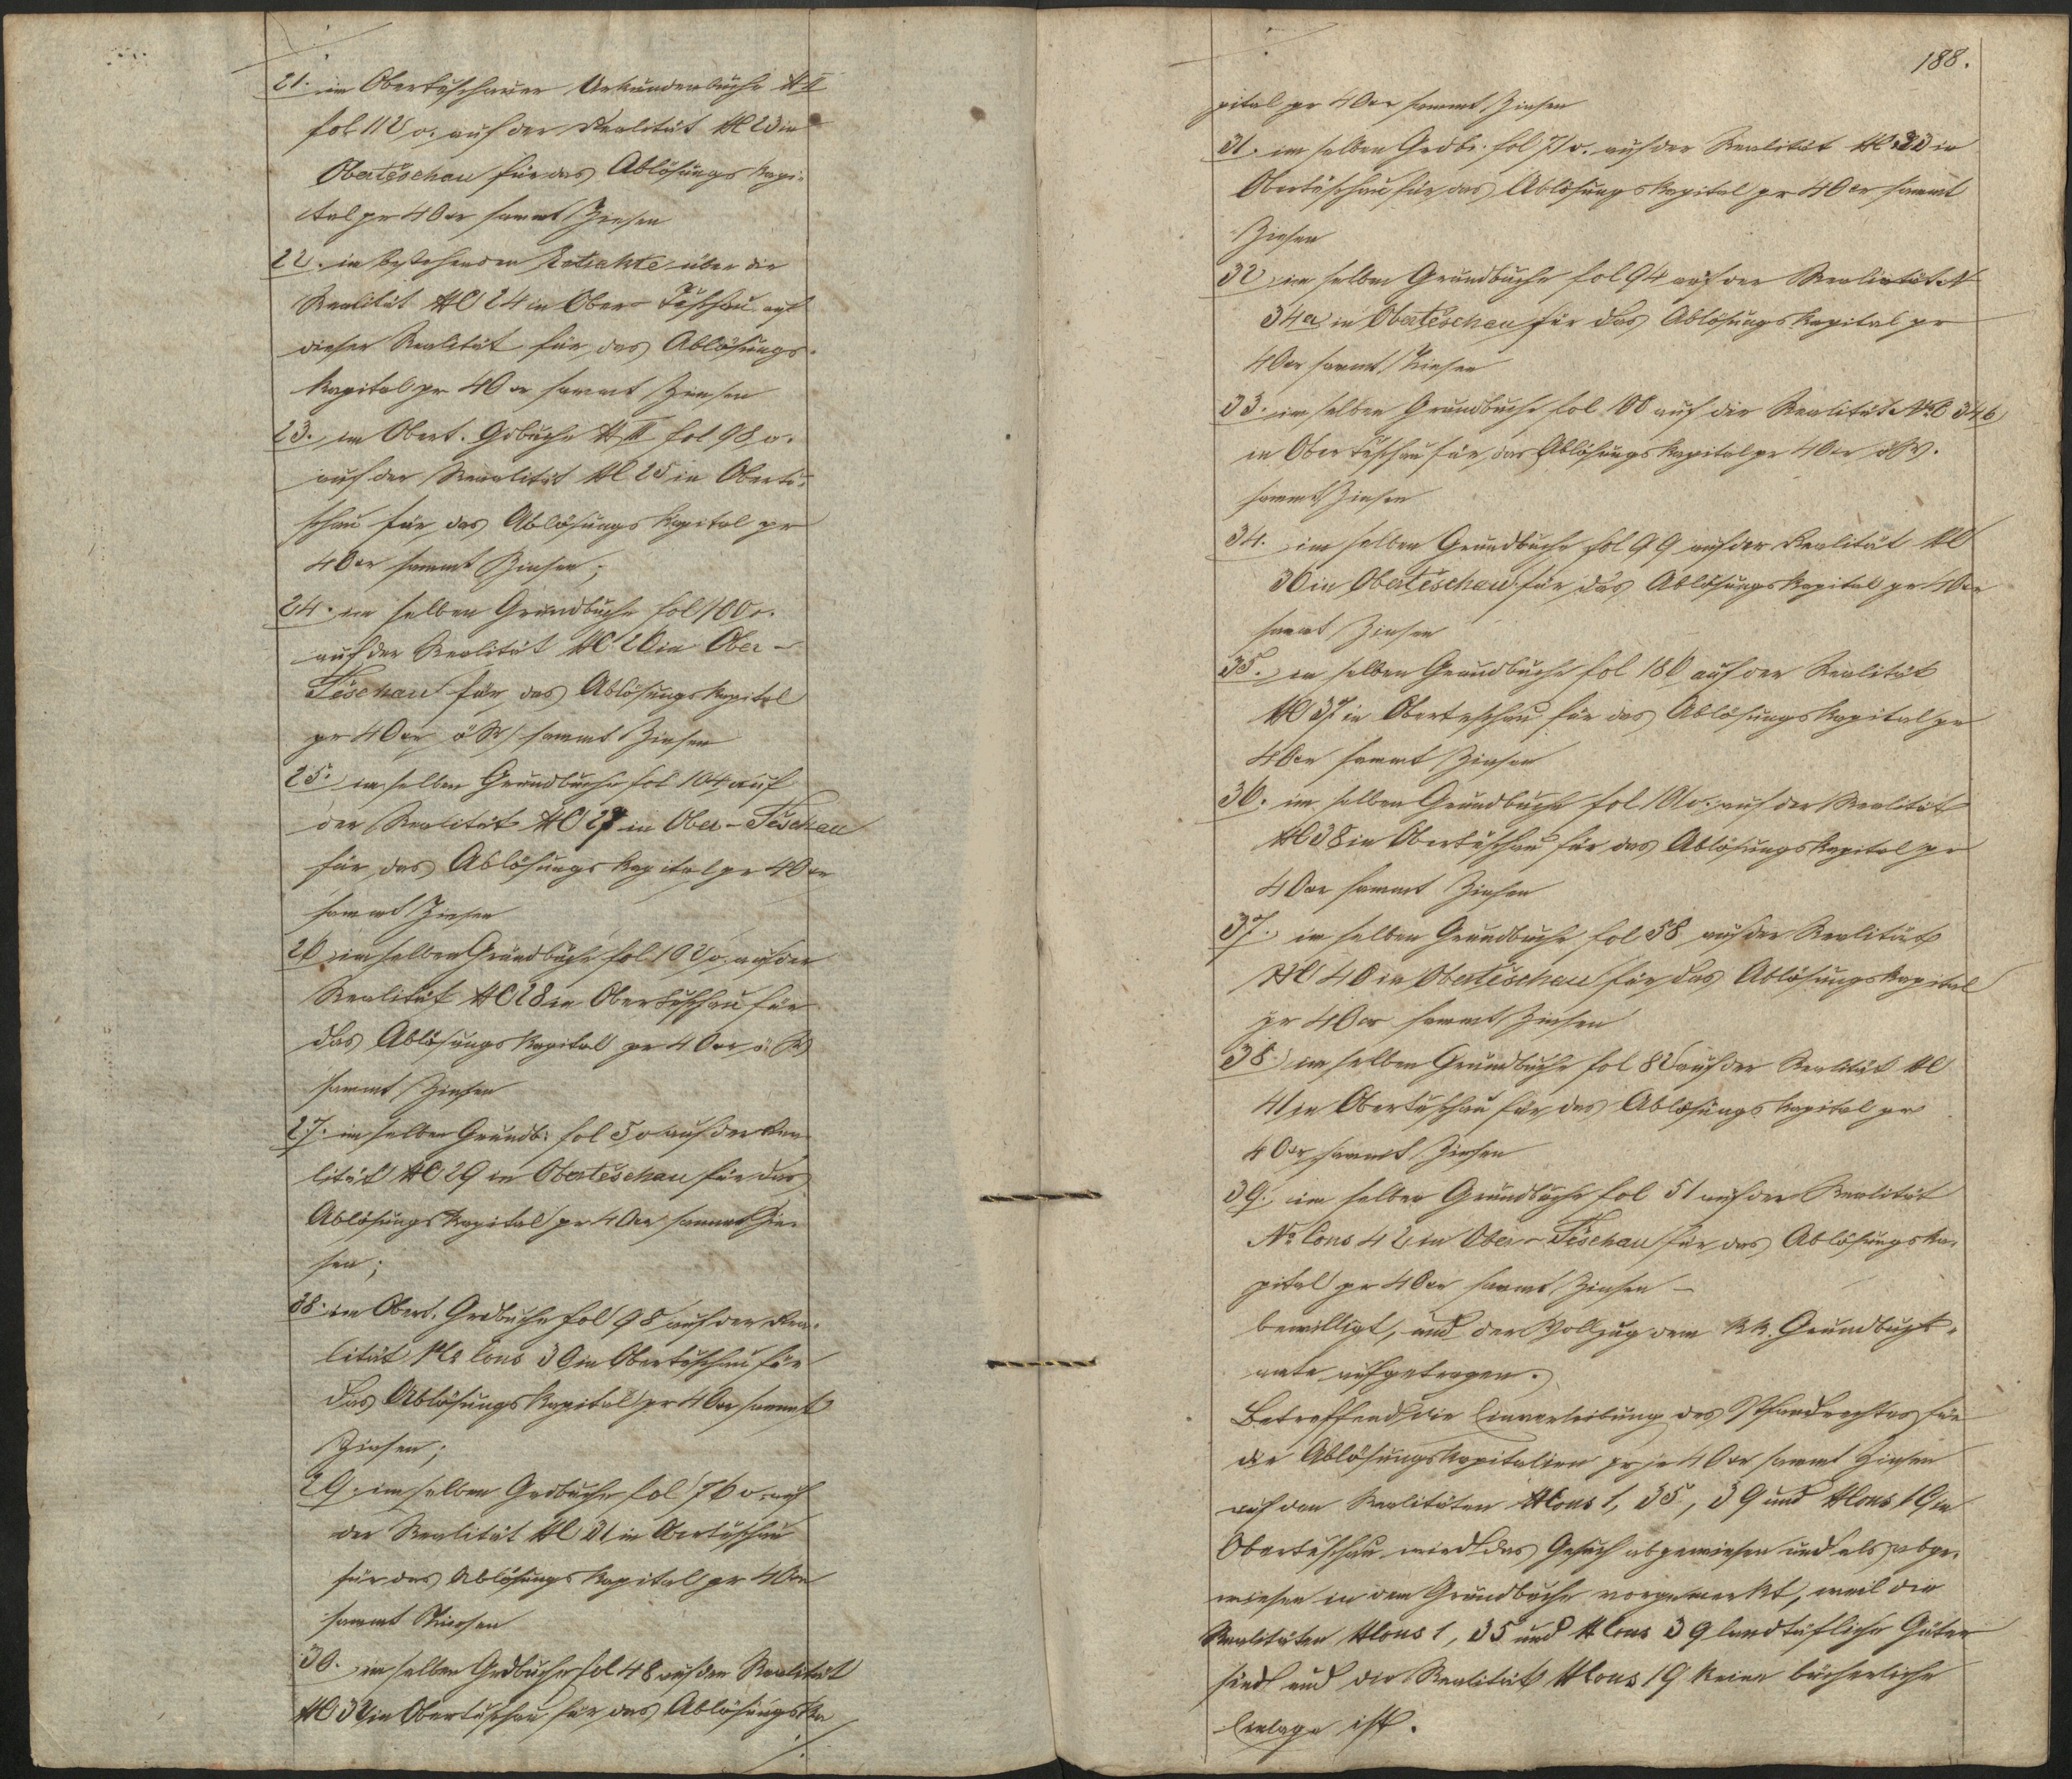 21. im Oberteschauer Urkundenbuche N II
fol 112 v. auf der Realität NC 23 in
Oberteschau für das Ablösungs Kapi-
tal pr 40 xr sammt Zinsen
22. in bestehenden Extrakte über die
Realität NC 24 in Ober Teschau auf
dieser Realität für das Ablösungs-
kapital pr 40 xr sammt Zinsen
23. im Obert. Gdbuche N II fol 98 v.
auf der Realität NC 25 in Oberte-
schau für das Ablösungskapital pr
40 xr sammt Zinsen;
24. im selben Grundbuche fol 100 v.
auf der Realität NC 26 in Ober-
Teschau für das Ablösungskapital
pr 40 xr ö W sammt Zinsen
25. im selben Grundbuche fol 104 auf
der Realität NC 27 in Ober-Teschau
für das Ablösungs Kapital pr 40 xr
sammt Zinsen
26 im selben Grundbuche fol 102 v. auf der
Realität NC 28 in Oberteschau für
das Ablösungskapital pr 40 xr ö. W
sammt Zinsen
27. im selben Grundb. fol 50 auf der Rea-
lität NC 29 in Oberteschau für das
Ablösungskapital pr 40 xr sammt Zin-
sen;
28. im Obert. Grdbuche fol 98 auf der Rea-
lität No Cons 30 in Oberteschau für
das Ablösungskapital pr 40 xr sammt
Zinsen;
29. im selben Grdbuche fol 76 v. auf
der Realität NC 31 in Oberteschau
für das Ablösungskapital pr 40 xr
sammt Zinsen
30. im selben Grdbuche fol 48 auf der Realität
NC 32 in Oberteschau für das Ablösungska
./.
188.
pital pr 40 xr sammt Zinsen
31. im selben Grdb. fol 71 v. auf der Realität NC 33 in
Oberteschau für das Ablösungskapital pr 40 xr sammt
Zinsen
32 im selben Grundbuche fol 94 auf der Realität N
34a in Oberteschau für das Ablösungskapital pr
40 xr sammt Zinsen
33. im selben Grundbuche fol 100 auf der Realität NC 34b
in Oberteschau für das Ablösungskapital pr 40 xr öW.
sammt Zinsen
34. im selben Grundbuche fol 99 auf der Realität NC
36 in Oberteschau für das Ablösungskapital pr 40 xr
sammt Zinsen
35. im selben Grundbuche fol 186 auf der Realität
NC 37 in Oberteschau für das Ablösungskapital pr
40 xr sammt Zinsen
36. im selben Grundbuche fol 101 v. auf der Realität
NC 38 in Oberteschau für das Ablösungskapital pr
40 xr sammt Zinsen
37. im selben Grundbuche fol 58 auf der Realität
NC 40 in Oberteschau für das Ablösungskapital
pr 40 xr sammt Zinsen
38. im selben Grundbuche fol 82 auf der Realität NC
41 in Oberteschau für das Ablösungskapital pr
40 xr sammt Zinsen
39. im selben Grundbuche fol 51 auf der Realität
No Cons 42 in Ober-Teschau für das Ablösungska-
pital pr 40 xr sammt Zinsen –
bewilligt, und der Vollzug dem kk. Grundbuchs-
amte aufgetragen.
Betreffend die Einverleibung des Pfandrechtes für
die Ablösungskapitalien pr je 40 xr sammt Zinsen
auf den Realitäten NCons 1, 35, 39 und NCons 19 in
Oberteschau wird das Gesuch abgewiesen und als abge-
wiesen in dem Grundbuche vorgemerkt, weil die
Realitäten NCons 1, 35 und NCons 39 landtäfliche Güter
sind und die Realität NCons 19 keine bücherliche
Einlage ist.